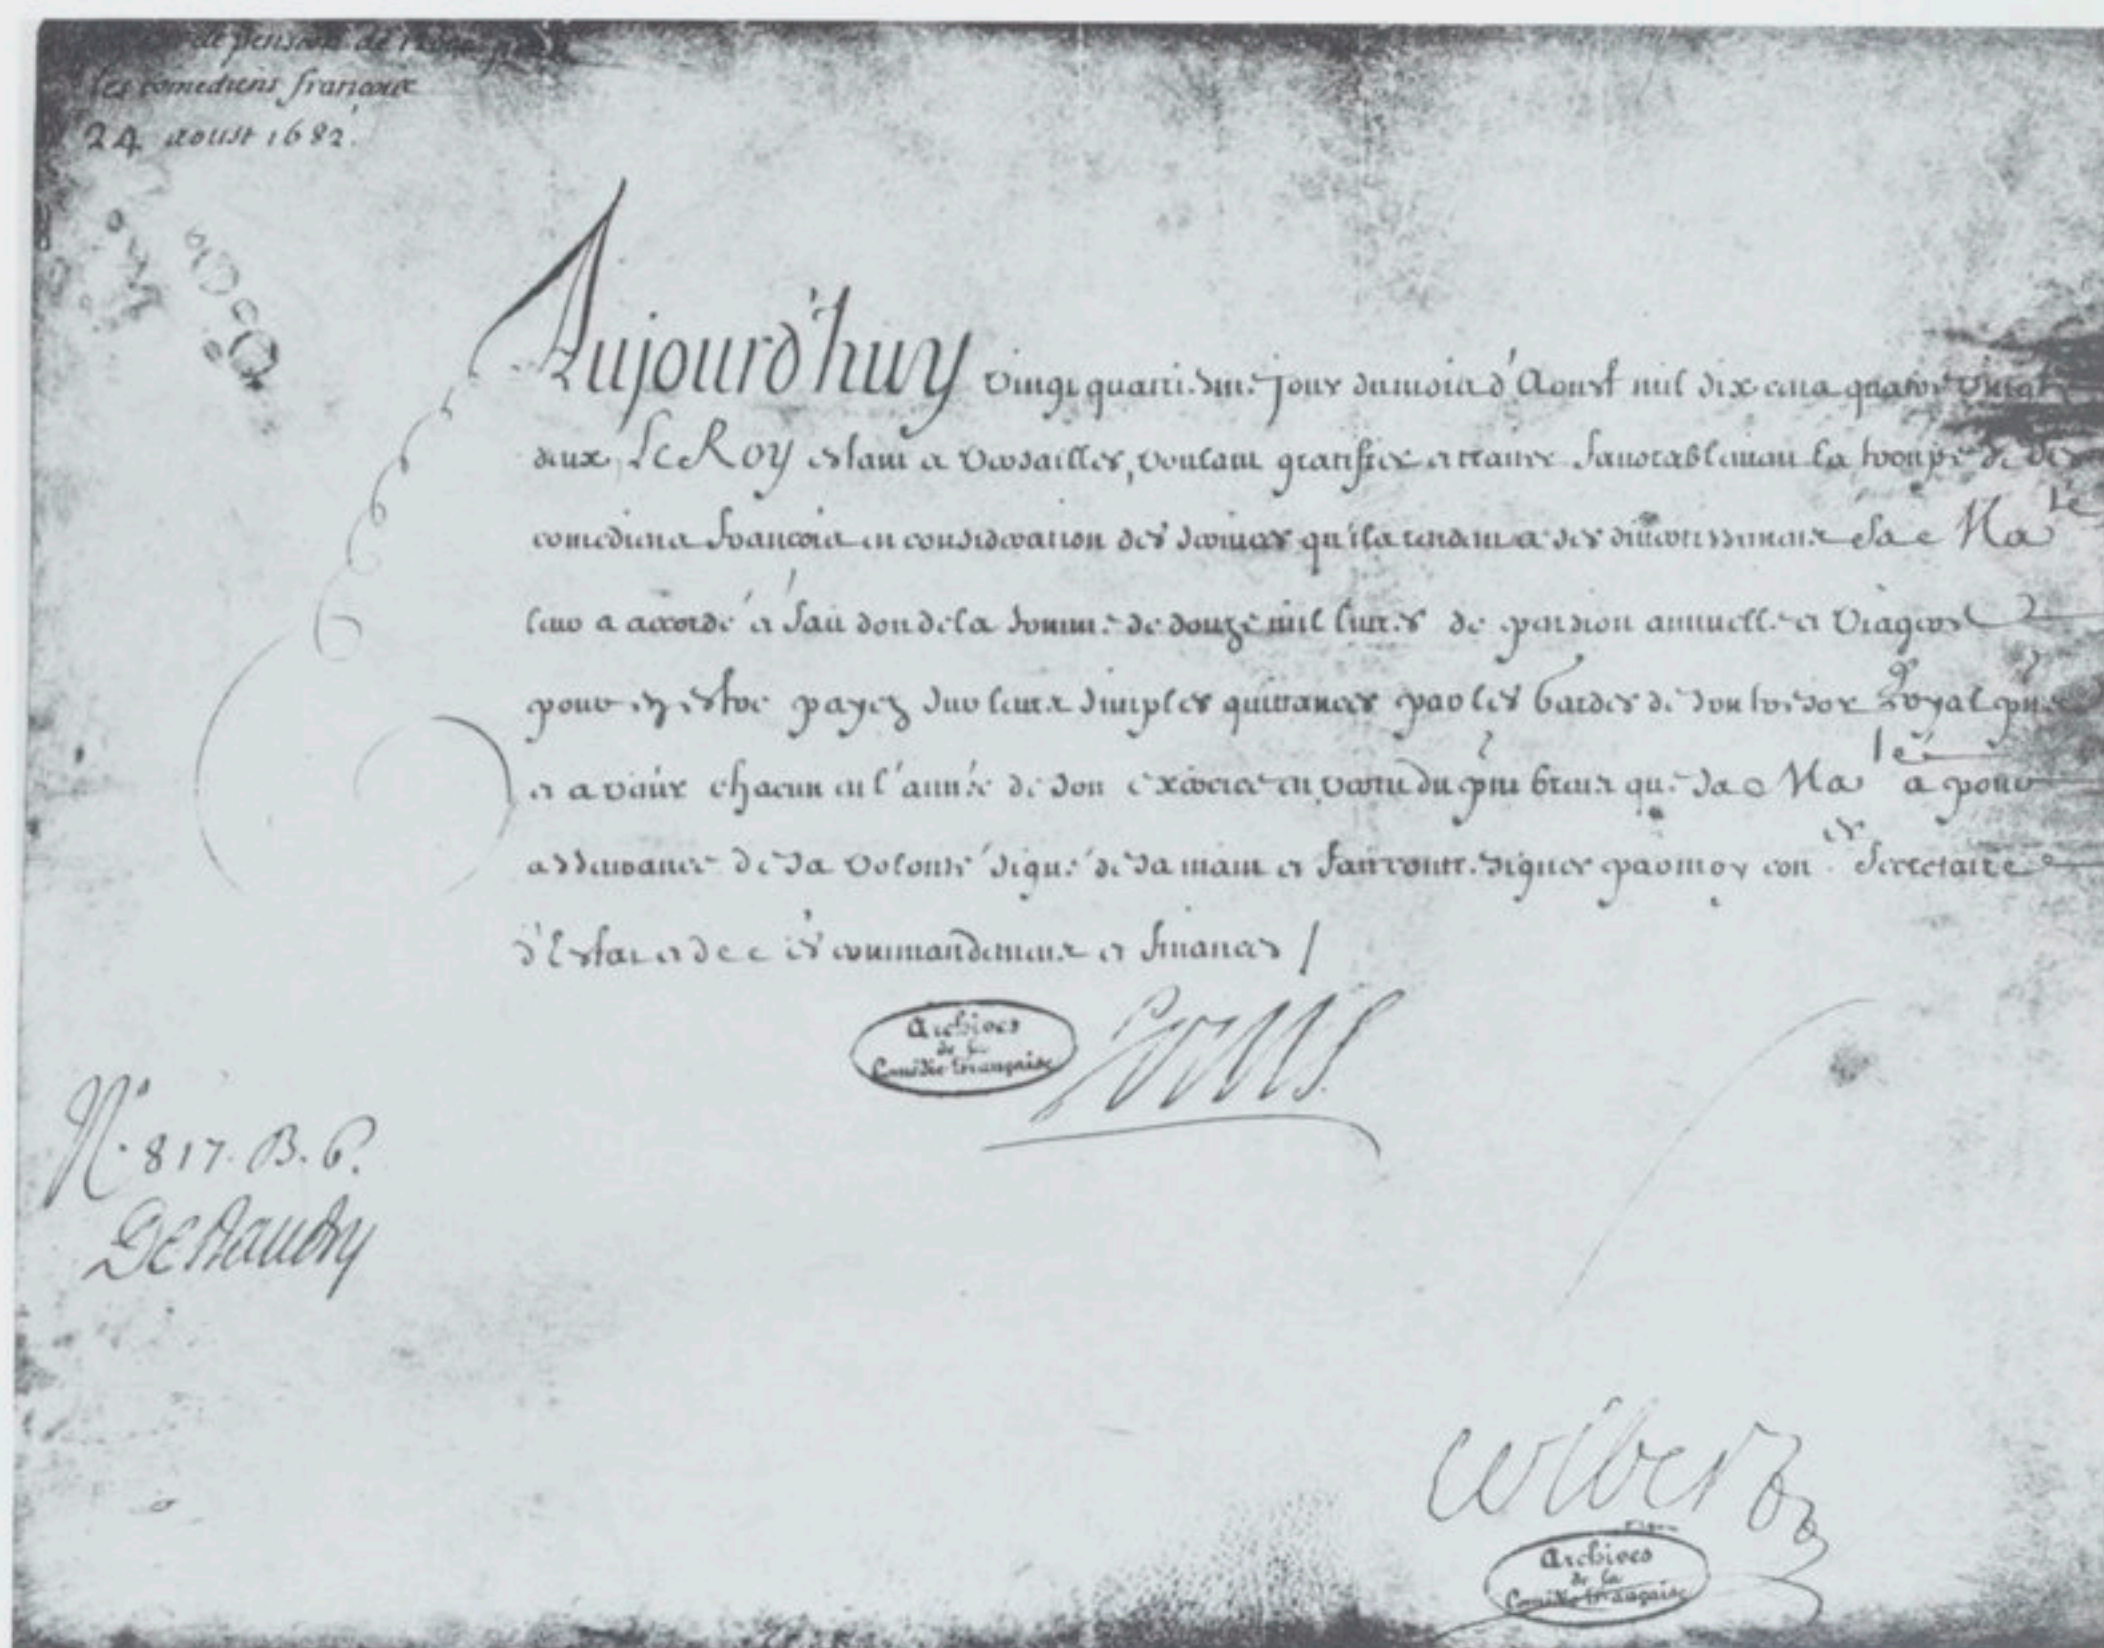 de pension de
les comediens francois
24 aoust 1682.
Aujourd'huy vingt quatriesme jour du mois d'Aoust mil six cens quatre vingt
deux, Le Roy estant a Versailles, voulant gratiffier et traiter favorablement la troupe de ses
comediens francois en consideration des services qu'ils rendent a ses divertissemens sa Ma.te
leur a accordé et fait don de la somme de douze mil livres de pension annuelle et viagere
pour en estre payez sur leurs simples quittances par les Gardes de son tresor Royal pns
et a venir chacun en l'année de son exercice en vertu du pnt brevet que sa Ma.té a pour
asseurance de sa volonté signé de sa main et fait contresigner par moy con.er Secretaire
d'Estat et de ses commandemens et finances /
Archives
de la
Comédie Française
Louis
N.° 817. B. 6.
colbert
Archives
de la
Comédie Française